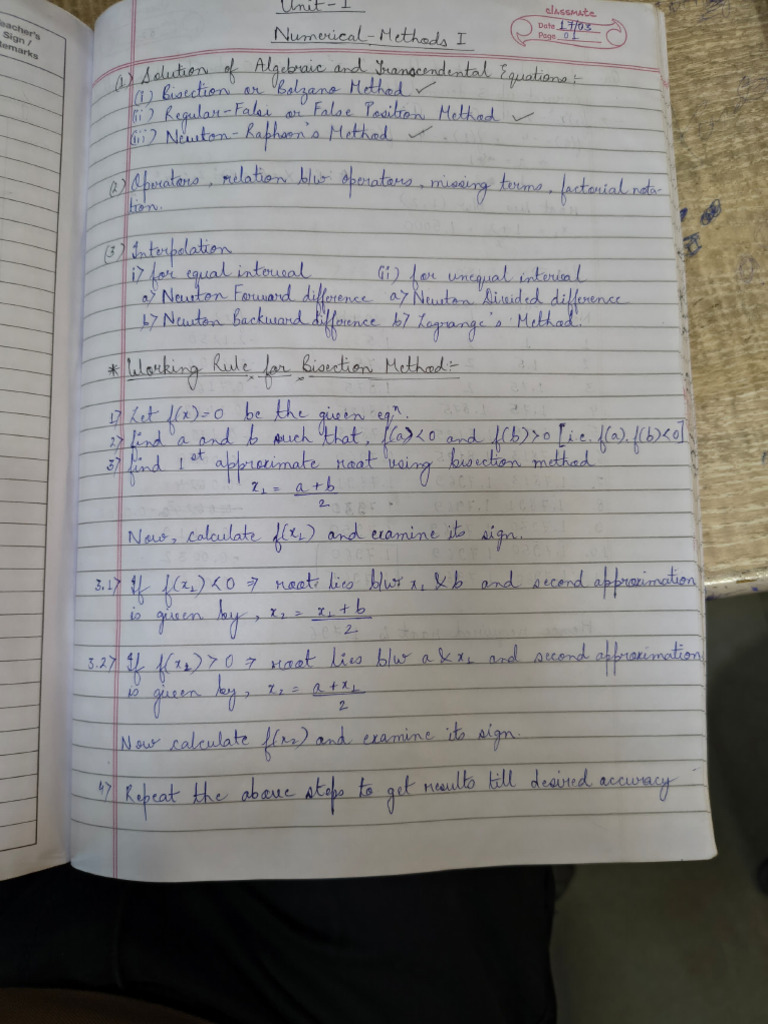 Teacher's
Sign /
Remarks
Unit-I
classmate
Date 17/03
Page 01
Numerical-Methods I
(1) Solution of Algebraic and Transcendental Equations:-
(i) Bisection or Bolzano Method ✓
(ii) Regular-Falsi or False Position Method ✓
(iii) Newton-Raphson's Method ✓
(2) Operators, relation b/w operators, missing terms, factorial nota-
tion.
(3) Interpolation
i) for equal interval (ii) for unequal interval
a) Newton Forward difference a) Newton Divided difference
b) Newton Backward difference b) Lagrange's Method.
* Working Rule for Bisection Method:-
1) Let f(x)=0 be the given eqⁿ.
2) find a and b such that, f(a)<0 and f(b)>0 [i.e. f(a).f(b)<0]
3) find 1st approximate root using bisection method
x₁ = (a+b)/2
Now, calculate f(x₁) and examine its sign.
3.1) If f(x₁)<0 ⇒ root lies b/w x₁ & b and second approximation
is given by, x₂ = (x₁+b)/2
3.2) If f(x₁)>0 ⇒ root lies b/w a & x₁ and second approximation
is given by, x₂ = (a+x₁)/2
Now calculate f(x₂) and examine its sign.
4) Repeat the above steps to get results till desired accuracy